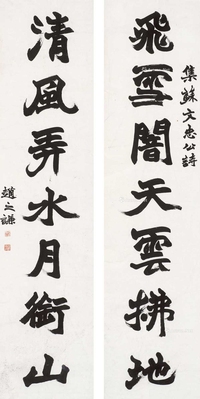 飛雪闇天雲拂地
集蘇文忠公詩
清風弄水月銜山
趙之謙